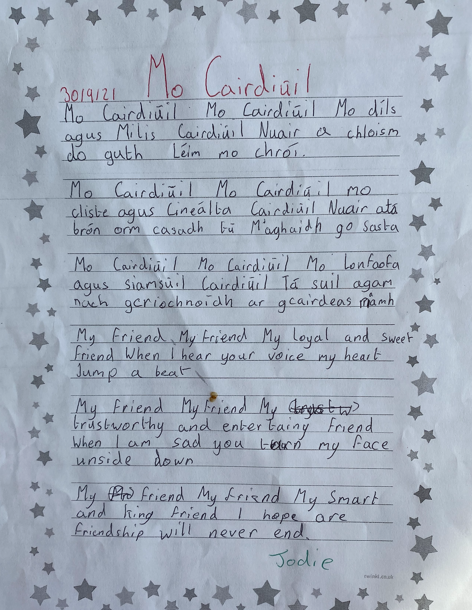 30/9/21 Mo Cairdiúil
Mo Cairdiúil Mo Cairdiúil Mo díls
agus Milis Cairdiúil Nuair a chloism
do guth Léim mo chroí.
Mo Cairdiúil Mo Cairdiúil mo
cliste agus Cineálta Cairdiúil Nuair atá
brón orm casadh tú M'aghaidh go sasta
Mo Cairdiúil Mo Cairdiúil Mo Lonfaofa
agus siamsúil Cairdiúil Tá suil agam
nach gcriochnoidh ar gcairdeas námh
My Friend My Friend My Loyal and sweet
friend When I hear your voice my heart
Jump a beat
My Friend My Friend My
trustworthy and entertaing Friend
When I am sad you turn my face
unside down
My Friend My Friend My Smart
and king friend I hope are
friendship will never end.
Jodie